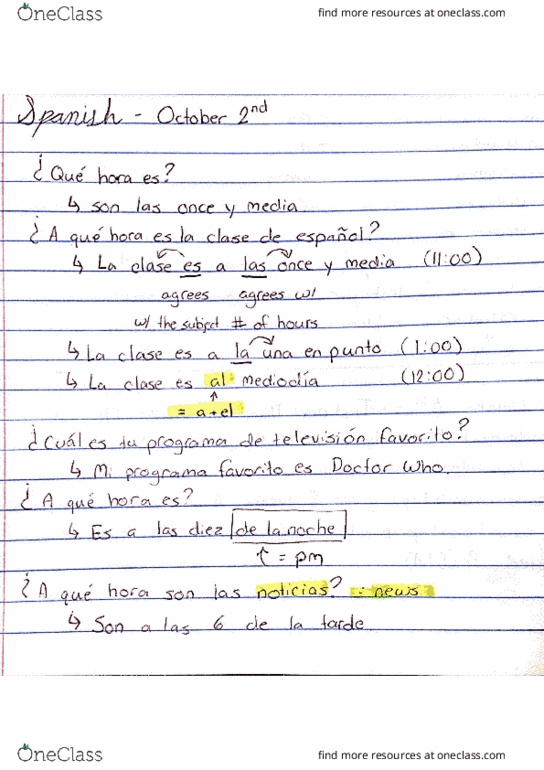 OneClass
find more resources at oneclass.com
Spanish - October 2nd
¿Qué hora es?
↳ son las once y media
¿A qué hora es la clase de español?
↳ La clase es a las once y media (11:00)
agrees agrees w/
w/ the subject # of hours
↳ La clase es a la una en punto (1:00)
↳ La clase es al mediodía (12:00)
↑
= a+el
¿Cuál es tu programa de televisión favorito?
↳ Mi programa favorito es Doctor Who.
¿A qué hora es?
↳ Es a las diez de la noche
↑ = pm
¿A qué hora son las noticias? : news
↳ Son a las 6 de la tarde.
OneClass
find more resources at oneclass.com